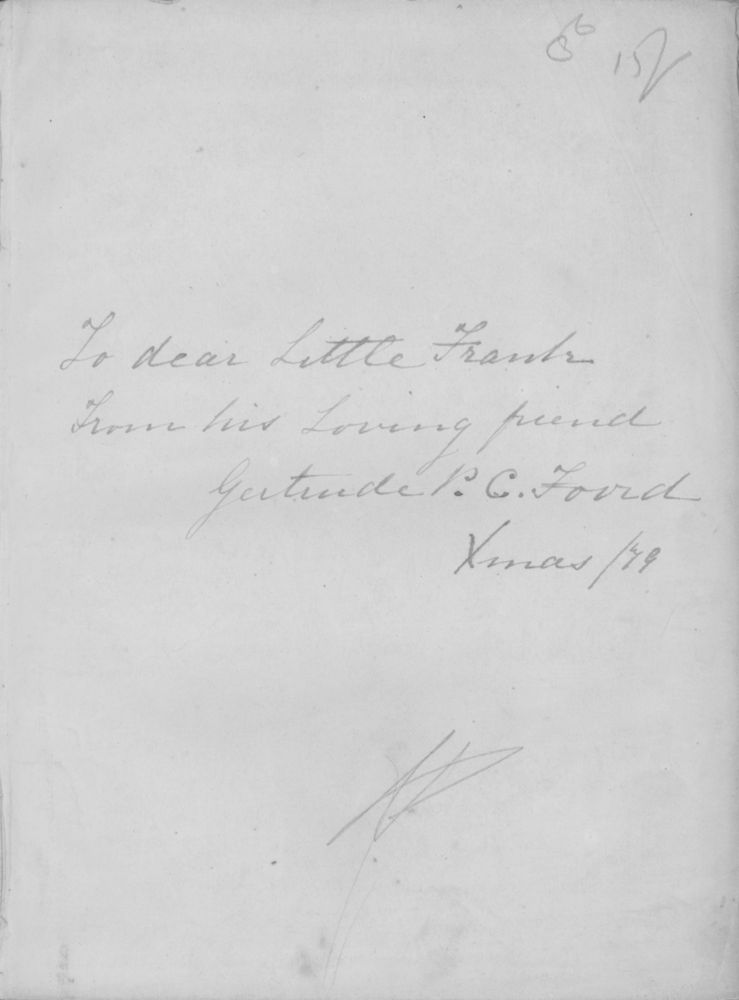 To dear Little Frank
From his Loving friend
Gertrude P. C. Foord
Xmas /79